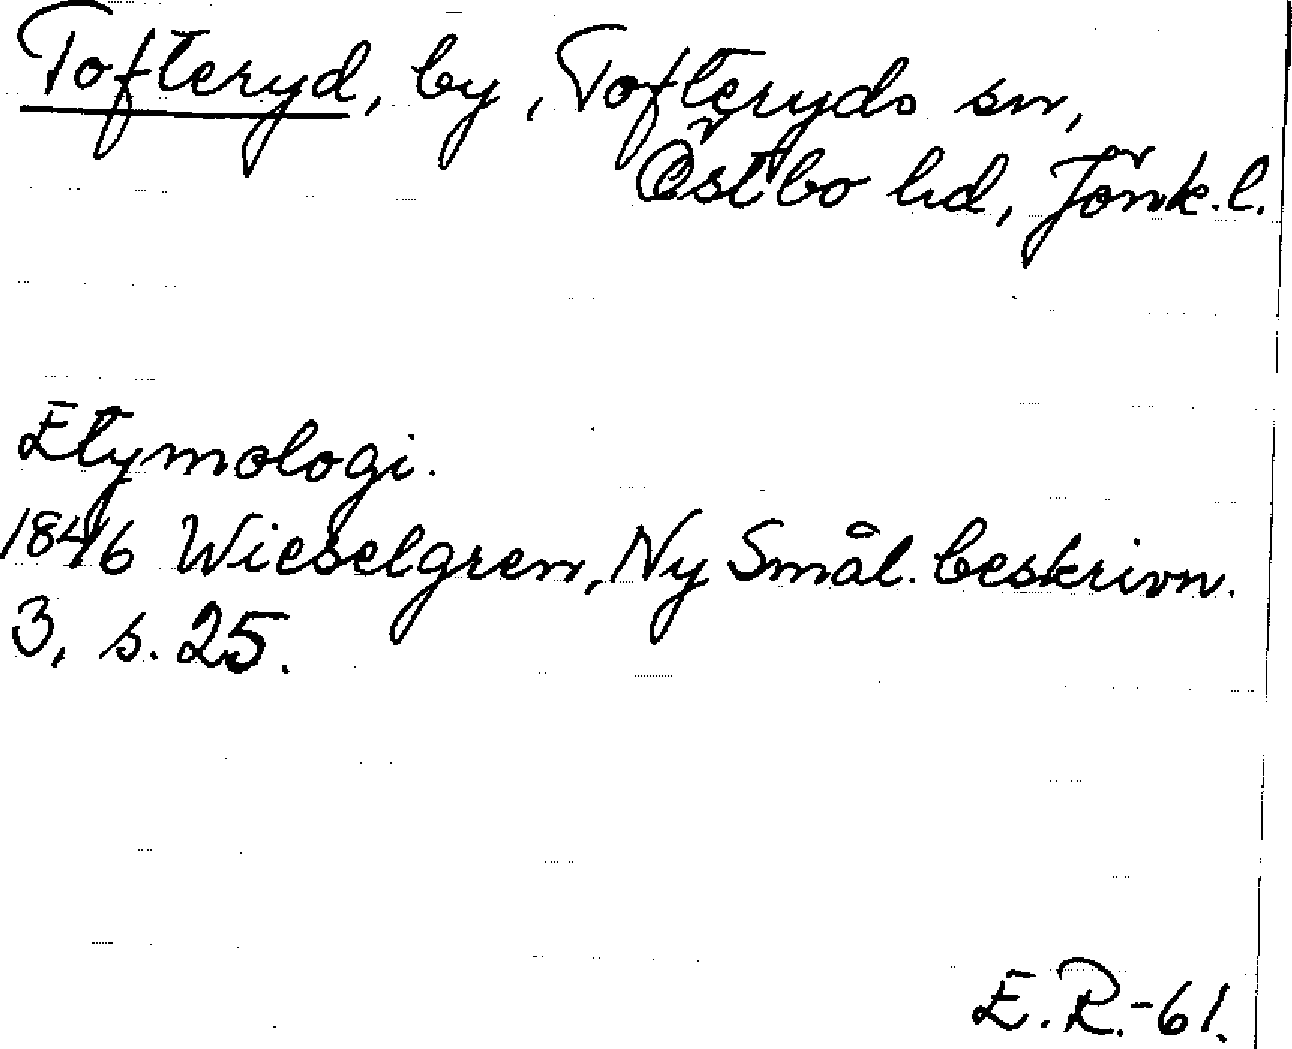 Tofteryd, by, Tofteryds sn,
Östbo hd, Jönk.l.
Etymologi.
1846 Wieselgren, Ny Smål. beskrivn.
3, s. 25.
E.R.-61.